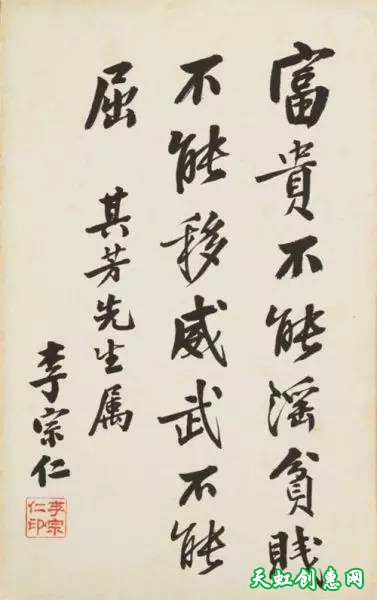 富貴不能淫貧賤
不能移威武不能
屈 其芳先生属
李宗仁
李宗仁印
天虹创惠网